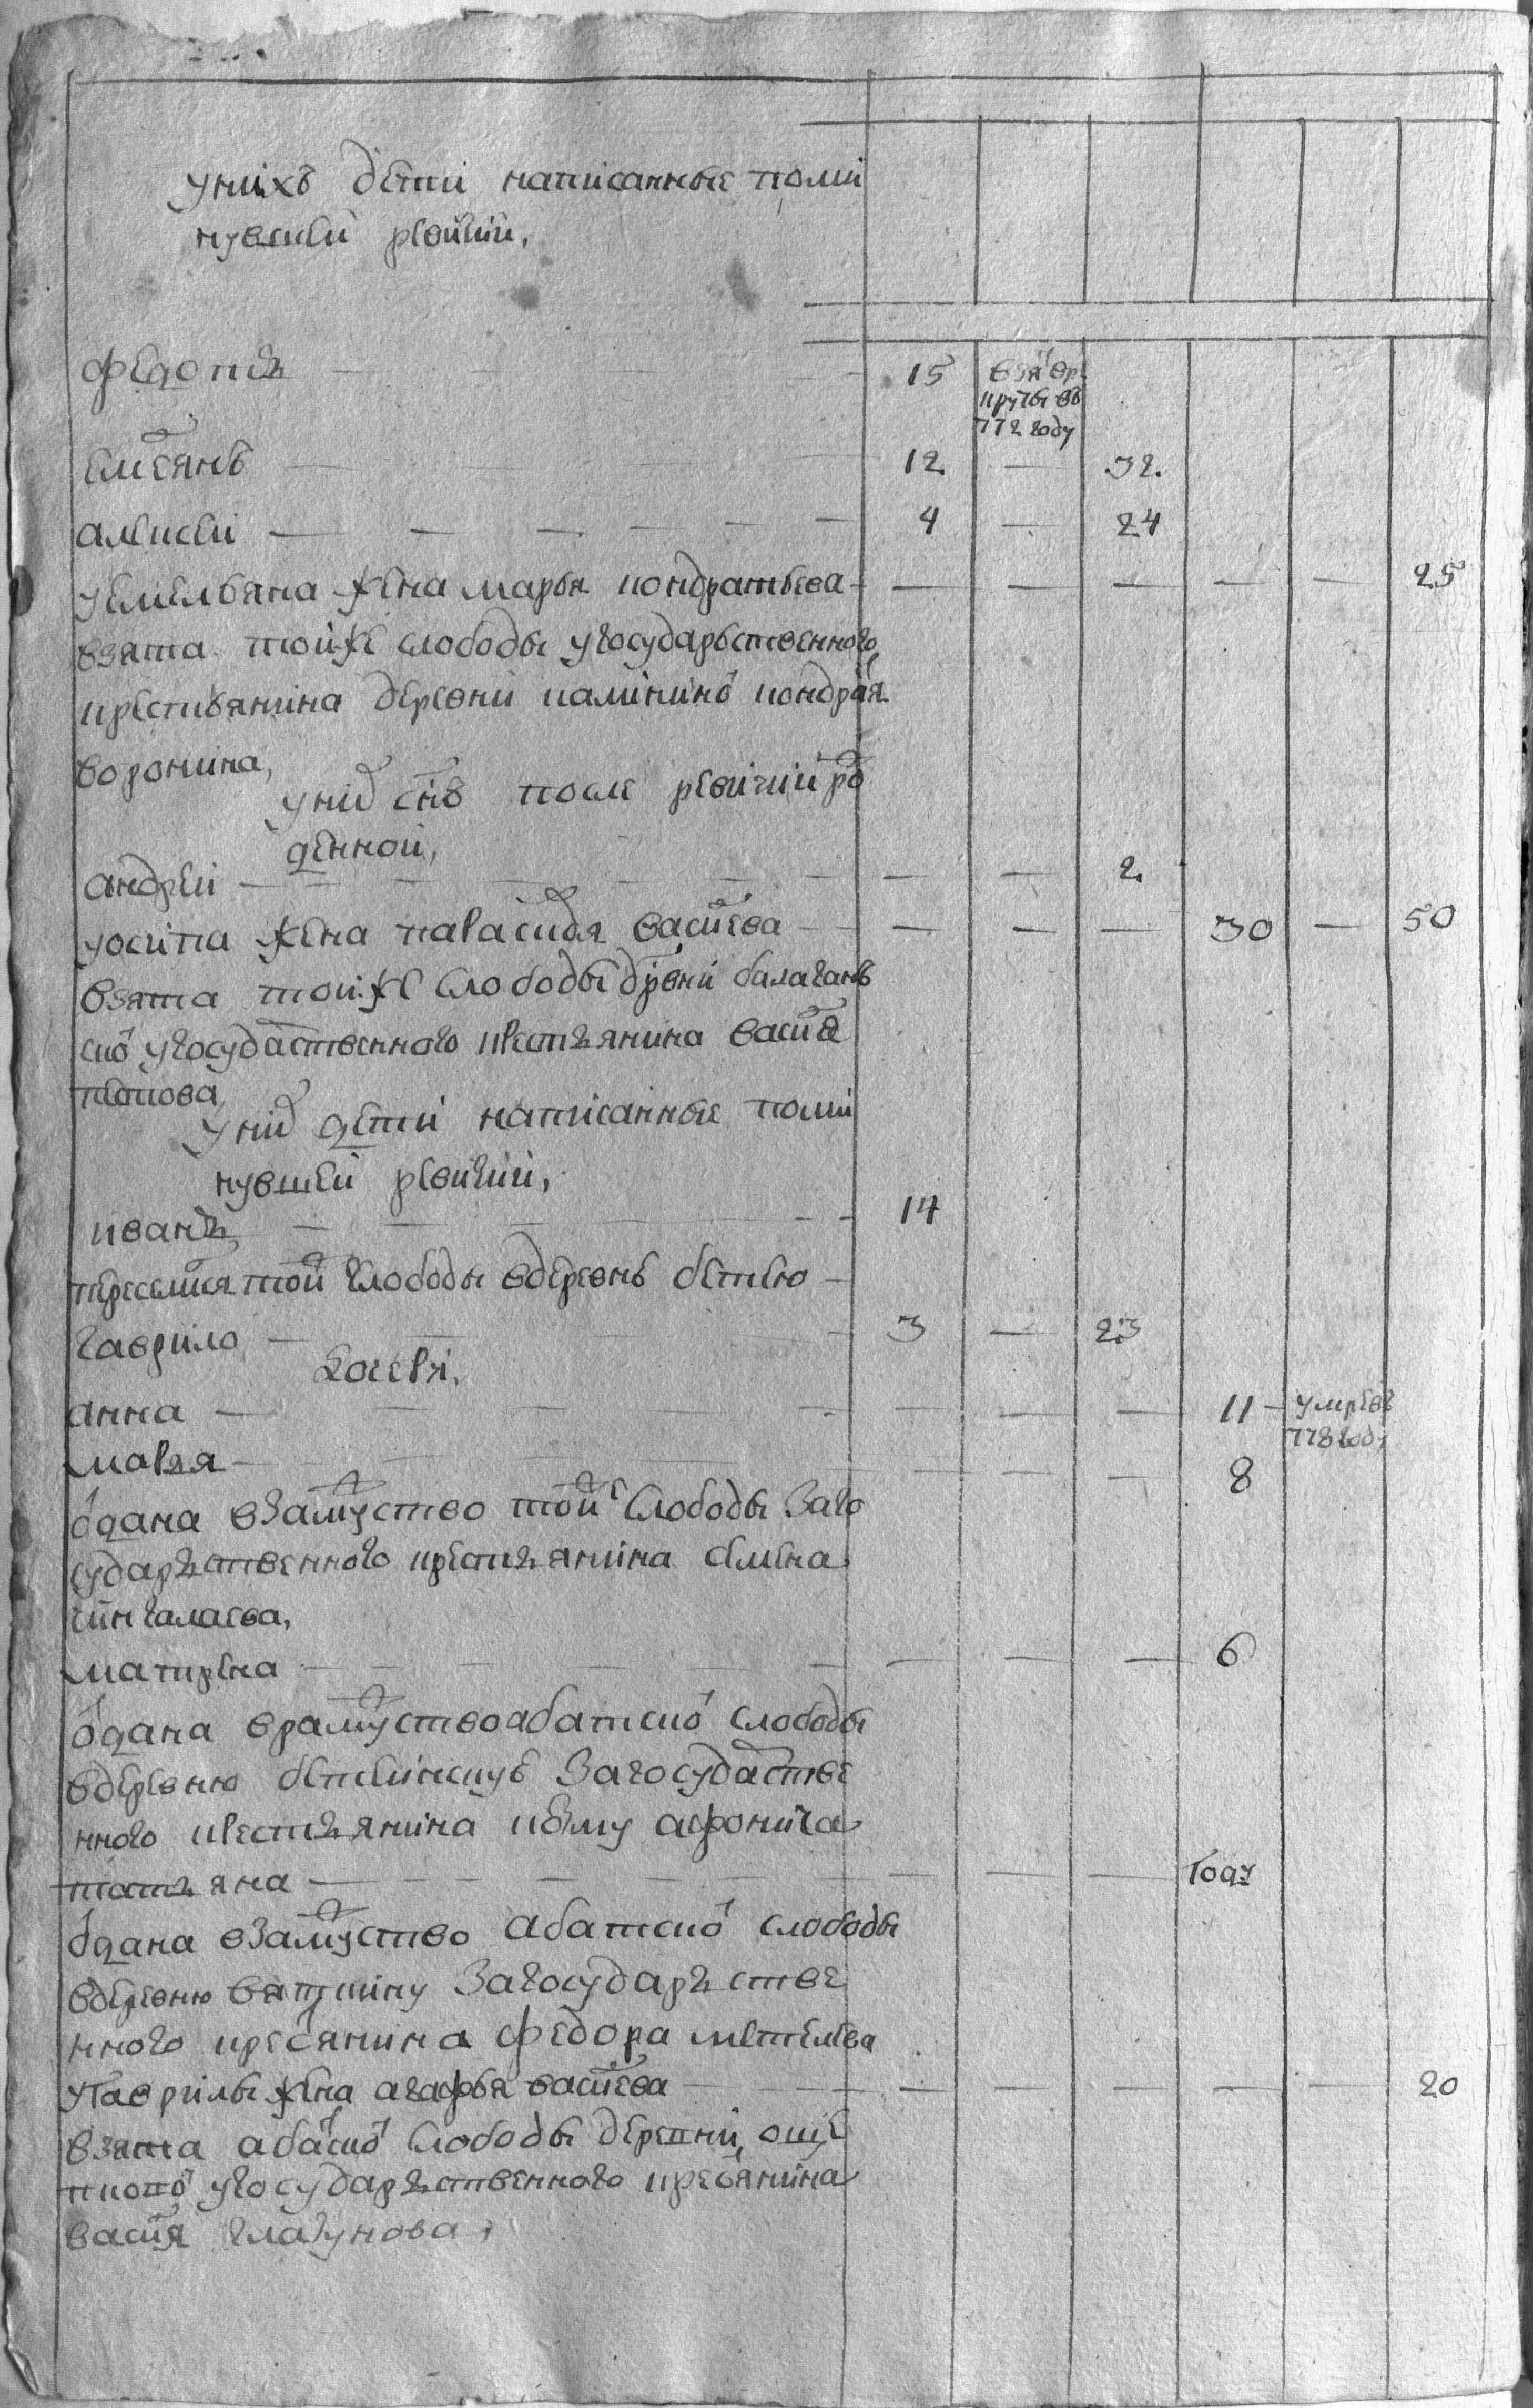 унихъ дети написанные поми
нувшеи ревизии,
федотъ — 15 взя врекруты въ 772 году
емелянъ — 12 — 32
алексеи — 4 — 24
уемельяна жена марья кондратьева — 25
взята тойже слободы угосударьственного
крестьянина деревни калининои кондратя
воронина,
унид снъ после ревизии ро
денной,
андреи — 2
уосипа жена парасковья васильева — 30 — 50
взята тойже слободы дрвни балаганъ
скои угосударственного крестьянина василя
попова
унид дети написанные поми
нувшеи ревизии,
иванъ, — 14
переселился той слободы вдеревнь бетию —
гаврило — 3 — 23
дочери,
анна — 11 — умре въ 778 году
маръя — 8
одана взамуство той слободы заго
сударъственного крестъянина семена
сингалаева,
матрена — 6
одана врамуство абатской слободы
вдеревню бетеинскую загосударстве
нного крестъянина кузму афонина
татъяна — году
одана взамуство абатской слободы
вдеревню вяткину загосударъстве
нного кресьянина федора метелева
угаврилы жена агафья васильева — 20
взята абацкой слободы деревни още
пковой угосударъственного кресьянина
василя глагунова,